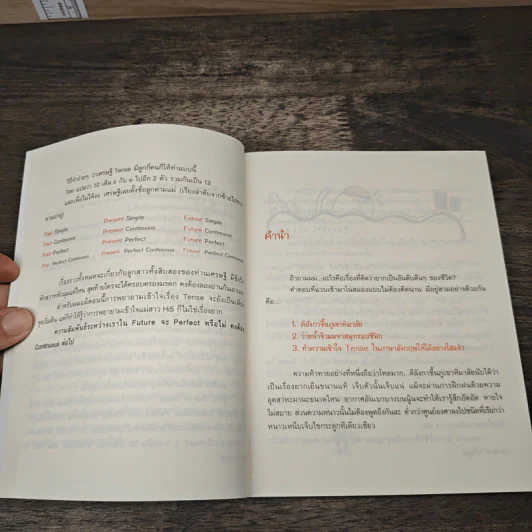 วิธีจำง่ายๆ ว่าเศรษฐี Tense มีลูกกี่คนก็ให้ทำแบบนี้
Ten แปลว่า 10 เติม s กับ e ไปอีก 2 ตัว รวมกันเป็น 12
และเพื่อไม่ให้งง เศรษฐีเลยตั้งชื่อลูกตามแม่ (เรียงลำดับจากซ้ายไปขวา
ตามอายุ)
Past Simple Present Simple Future Simple
Past Continuous Present Continuous Future Continuous
Past Perfect Present Perfect Future Perfect
Past Perfect Continuous Present Perfect Continuous Future Perfect Continuous
เรื่องราวทั้งหมดจะเกี่ยวกับลูกสาวทั้งสิบสองของท่านเศรษฐี
สำหรับผมแม้ตอนนี้การพยายามเข้าใจเรื่อง Tense จะยังเป็น
จุดเริ่มต้น แต่ก็ให้รู้ว่าการพยายามเข้าใจแม่สาว Hi5 ก็ไม่ใช่เรื่องยาก
ความสัมพันธ์ระหว่างเราใน Future จะ Perfect หรือไม่ คงต้อง
Continuous ต่อไป
คำนำ
ถ้าถามผม...อะไรคือเรื่องที่คิดว่ายากเป็นอันดับต้นๆ ของชีวิต?
คำตอบที่แวบเข้ามาในสมองแบบไม่ต้องคิดนาน มีอยู่สามอย่างด้วยกัน
คือ...
1. ตีลังกาขึ้นภูเขาหิมาลัย
2. ว่ายน้ำข้ามมหาสมุทรแปซิฟิก
3. ทำความเข้าใจ Tense ในภาษาอังกฤษให้ได้อย่างใสแจ๋ว
ความท้าทายอย่างที่หนึ่งถือว่าโหดมาก...ตีลังกาขึ้นภูเขาหิมาลัยนับได้ว่า
เป็นเรื่องยากเย็นขนานแท้ เจ็บตัวนั้นเจ็บแน่ แม้จะผ่านการฝึกฝนด้วยความ
อุตสาหะมานะขนาดไหน อากาศอันเบาบางบนนู้นจะทำให้เรารู้สึกอึดอัด หายใจ
ไม่สบาย ส่วนความหนาวนั้นไม่ต้องพูดถึงกันละ ต่ำกว่าศูนย์องศาลงไปชนิดที่เรียกว่า
หนาวเหน็บเจ็บไขกระดูกทีเดียวเชียว